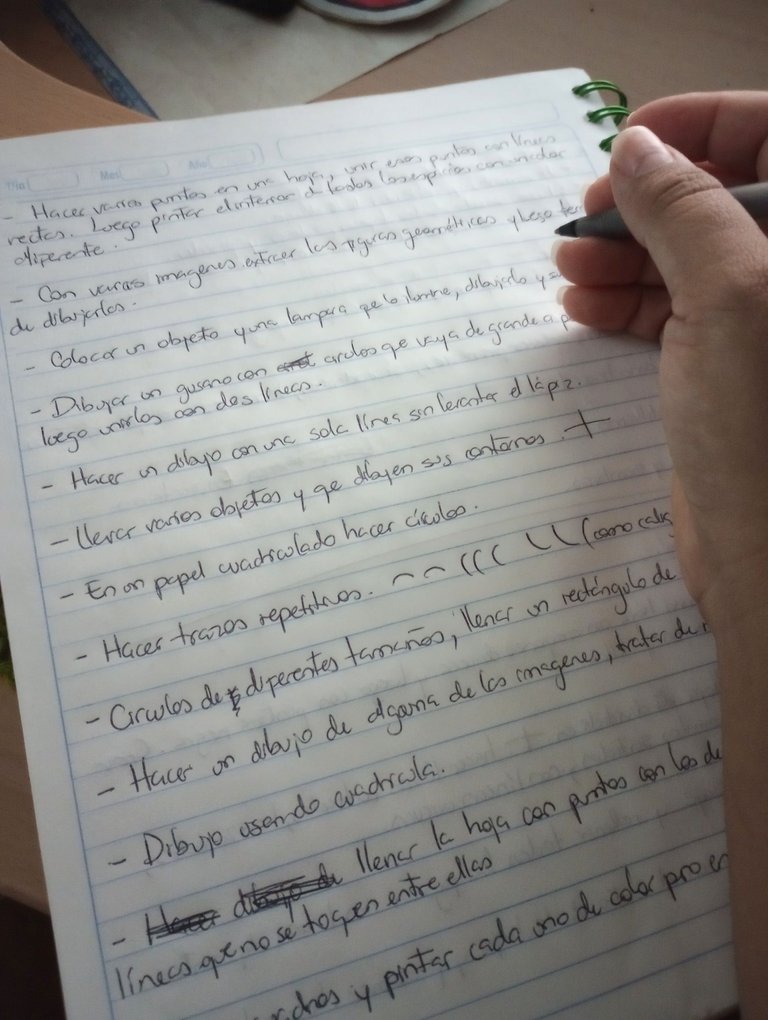 Día Mes Año
- Hacer varios puntos en una hoja, unir esos puntos con líneas
rectas. Luego pintar el interior d todos los espacios con un color
diferente.
- Con varias imagenes extraer las figuras geométricas y luego
de dibujarlos.
- Colocar un objeto y una lampara qe lo ilumine, dibujarlo y
- Dibujar un gusano con circulos qe vaya de grande a p
luego unirlos con dos líneas.
- Hacer un dibujo con una sola línea sin levantar el lápiz.
- Llevar varios objetos y qe dibujen sus contornos.
- En un papel cuadriculado hacer círculos.
- Hacer trazos repetitivos. (como
- Circulos de diferentes tamaños, llenar un rectángulo de
- Hacer un dibujo de alguna de las imagenes, tratar de
- Dibujo usando cuadricula.
- llenar la hoja con puntos con los de
líneas que no se toqen entre ellas
y pintar cada uno de color